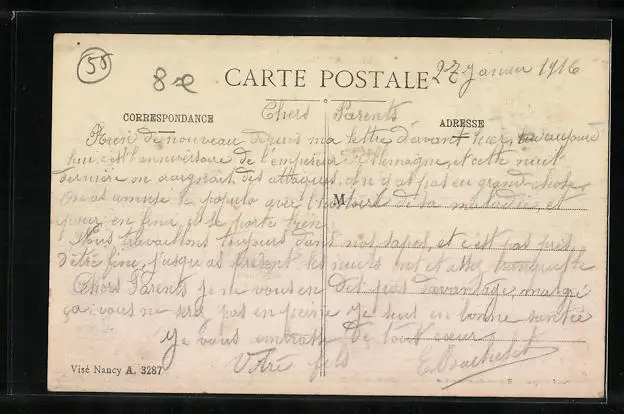 50
8 se
CARTE POSTALE 27 Janvier 1916
CORRESPONDANCE
Chers Parents
ADRESSE
Rien de nouveau depuis ma lettre d'avant hier, aujourd
hui c'est l'anniversaire de l'empereur d'Allemagne, et cette nuit
dernière on craignait des attaques, il n'y a pas eu grand chose
On a amusé le populo avec l'histoire de la maladie, et
M
pour en finir il se porte bien
Nous travaillons toujours dans nos sapes, et c'est pas près
d'être fini, jusqu'a présent les nuits ont été assez tranquille
Chers Parents je ne vous en dit pas davantage, malgré
ça vous ne serez pas en peine je suis en bonne santée
Je vous embrasse de tout cœur
Votre fils
Visé Nancy A. 3287